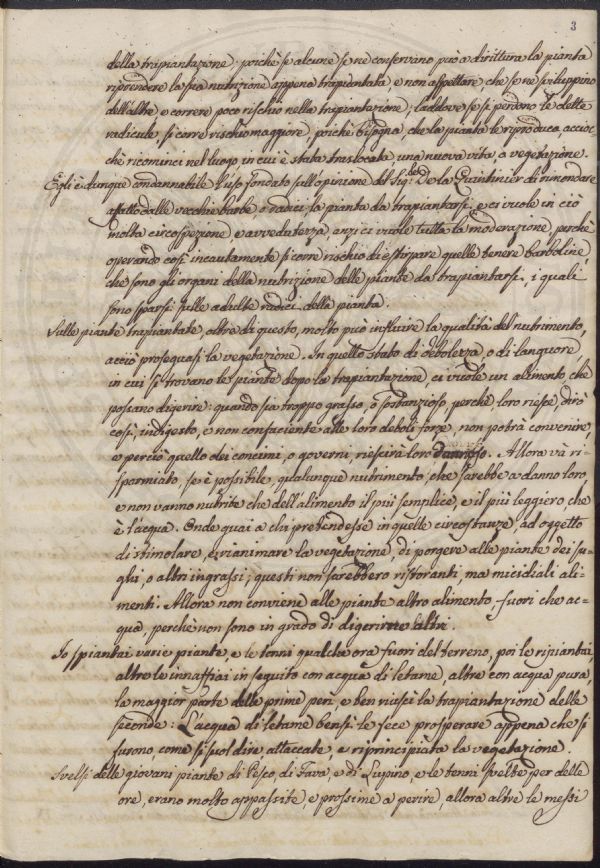 3
della trapiantazione; poichè se alcune se ne conservano può a dirittura la pianta
riprendere la sua nutrizione appena trapiantata, e non aspettare, che se ne sviluppino
dell'altre, e correre poco rischio nella trapiantazione; laddove se si perdono le dette
radicule si corre rischio maggiore, poichè bisogna, che la pianta le riproduca, accioc=
chè ricominci nel luogo in cui è stata traslocata una nuova vita, o vegetazione.
Egli è dunque condannabile l'uso fondato sull'opinione del Sig.r De la Quintinier di rimondare
affatto dalle vecchie barbe o radici la pianta da trapiantarsi, e ci vuole in ciò
molta circospezione, e avvedutezza, anzi ci vuole tutta la moderazione, perchè
operando così incautamente si corre rischio di estirpare quelle tenere barboline,
che sono gli organi della nutrizione delle piante da trapiantarsi, i quali
sono sparsi sulle adulte radici della pianta.
Sulle piante trapiantate oltre di questo, molto può influire la qualità del nutrimento,
acciò proseguasi la vegetazione. In quello stato di debolezza, o di languore,
in cui si trovano le piante dopo la trapiantazione, ci vuole un alimento, che
possano digerire: quando sia troppo grasso, o sostanzioso, perchè loro riesce, dirò
così, indigesto, e non confaciente alle loro deboli forze, non potrà convenire,
e perciò quello dei concimi, o governi, riescirà loro dannoso. Allora và ri=
sparmiato, se è possibile, qualunque nutrimento, che sarebbe a danno loro,
e non vanno nutrite che dell'alimento il più semplice, e il più leggiero, che
è l'acqua. Onde guai a chi pretendesse in quelle circostanze, ad oggetto
di stimolare, e rianimare la vegetazione, di porgere alle piante dei su=
ghi, o altri ingrassi; questi non sarebbero ristoranti, ma micidiali ali=
menti. Allora non conviene alle piante altro alimento, fuori che ac=
qua, perchè non sono in grado di digerirne altri.
Io spiantai varie piante, e le tenni qualche ora fuori del terreno, poi le ripiantai,
altre le innaffiai in seguito con acqua di letame, altre con acqua pura,
la maggior parte delle prime perì, e ben riuscì la trapiantazione delle
seconde: L'acqua di letame bensì le fece prosperare appena che si
furono, come si suol dire, attaccate, e riprincipiata la vegetazione.
Svelsi delle giovani piante di Pisco, di Fava, e di Lupino, e le tenni svelte per delle
ore, erano molto appassite, e prossime a perire, allora altre le messi